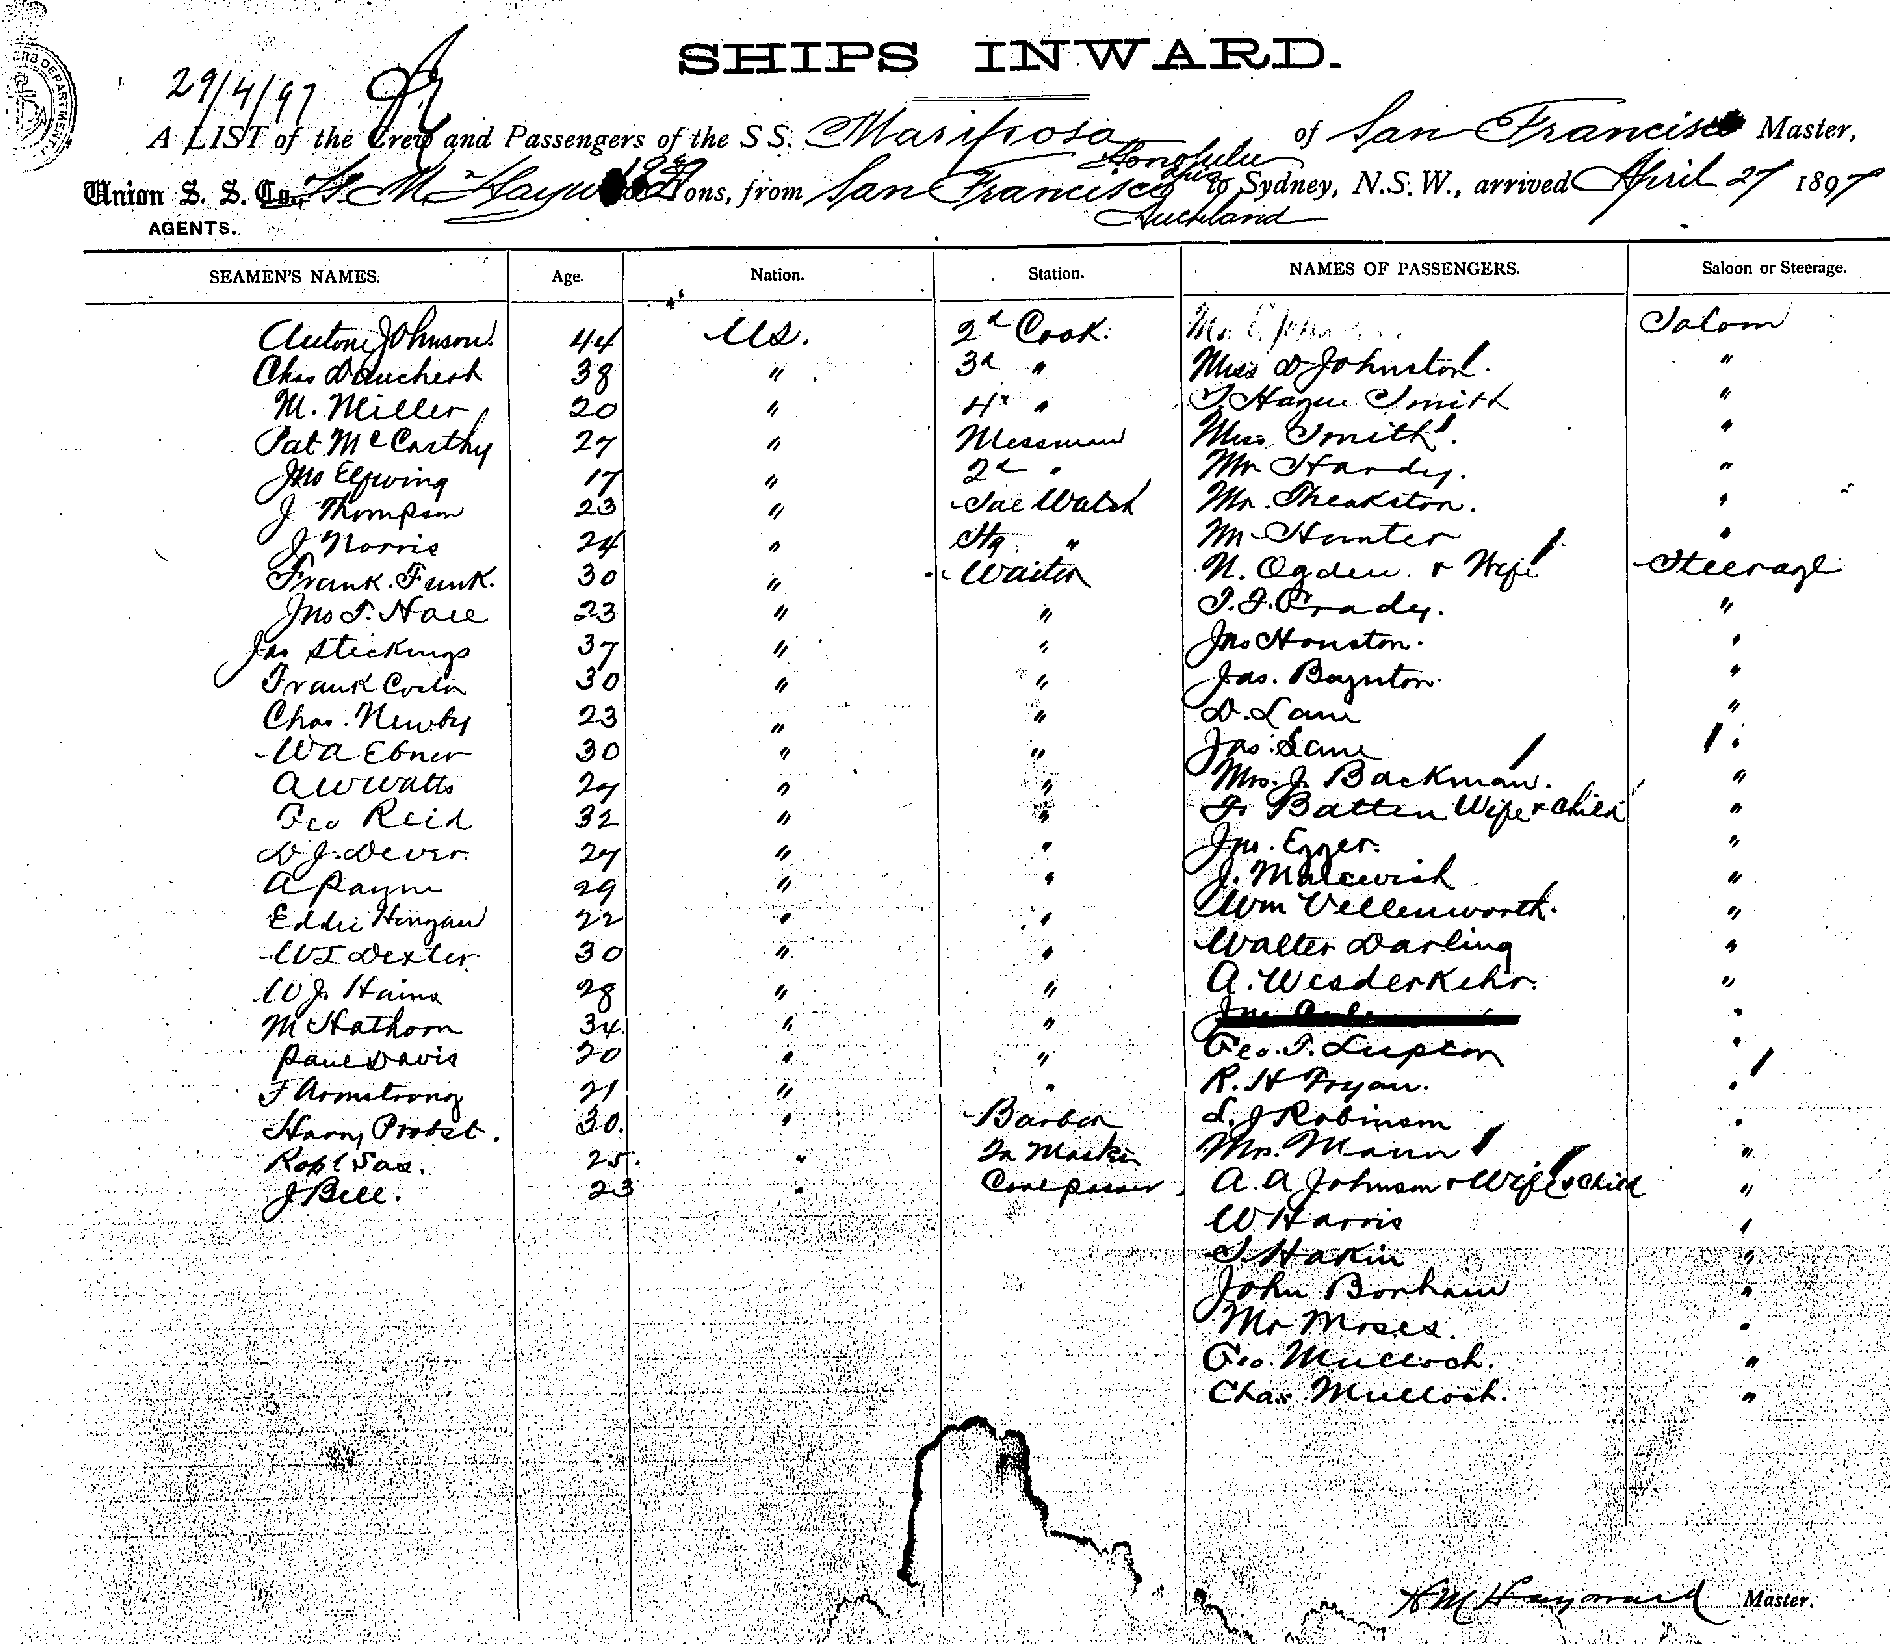 SHIPS INWARD.
29/4/97
A LIST of the Crew and Passengers of the S S. Mariposa of San Francisco Master,
Honolulu
Union S. S. Co., H. M. Hayward Tons, from San Francisco to Sydney, N.S.W., arrived April 27 1897
AGENTS. Auckland
SEAMEN'S NAMES. Age. Nation. Station. NAMES OF PASSENGERS. Saloon or Steerage.
Antone Johnson. 44 US. 2d Cook. Saloon
Chas 38 " 3d " Miss D Johnston. "
M. Miller 20 " 4th " T Hague Smith "
Pat McCarthy 27 " Messman Miss Smith. "
Jno Elfwing 17 " 2d " Mr Hardy. "
J Thompson 23 " Mr. Theakston. "
J Norris 24 " " Mr Hunter "
Frank. Funk. 30 " Waiter N. Ogden. & Wife Steerage
Jno T. 23 " " T. F. Brady. "
Jas Steckings 37 " " Jno Houston. "
Frank Costa 30 " " Jas. Boynton. "
Chas. Newby 23 " " D. Lane "
Wa Ebner 30 " " Jas. Lane "
A W Watts 27 " " Mrs. J. Backman. "
Geo Reid 32 " " Fr Batten Wife & child "
D J. Dever. 27 " " Jno. Egger. "
A Payne 29 " " J. "
Eddie 22 " " Wm Vellenworth. "
W I Dexter 30 " " Walter Darling "
W J. Hains 28 " " A. Wesderkehr. "
M Hathorn 34. " " "
Paul Davis 20 " " Geo. T. Lupton "
F Armstrong 21 " " R. H Pryan. "
Harry Probst. 30. " Barber L. J Robinson "
Robt 25. " Mrs. Mann "
J Bell. 23 " Coalpasser A. A Johnson & Wife & child "
W Harris "
T Hakin "
John Bonham "
Mr Moses. "
Geo. Mulloch. "
Chas Mulloch. "
H M Hayward Master.